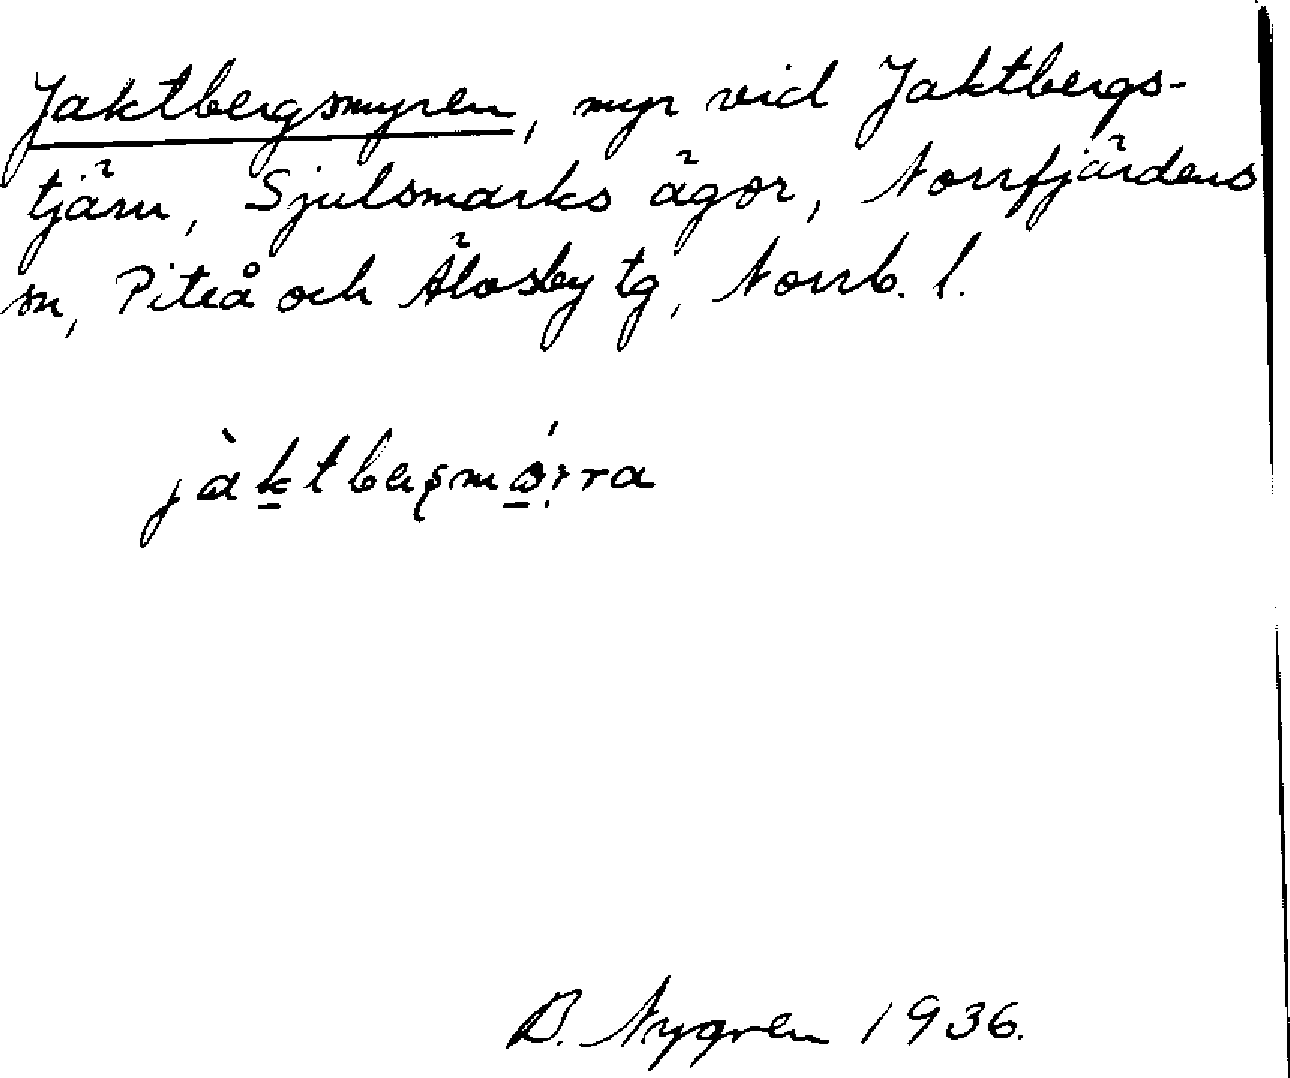 Jaktbergsmyren, myr vid Jaktbergs-
tjärn, Sjulsmarks ägor, Norrfjärdens
sn, Piteå och Älvsby tg, Norrb. l.
B. Nygren 1936.